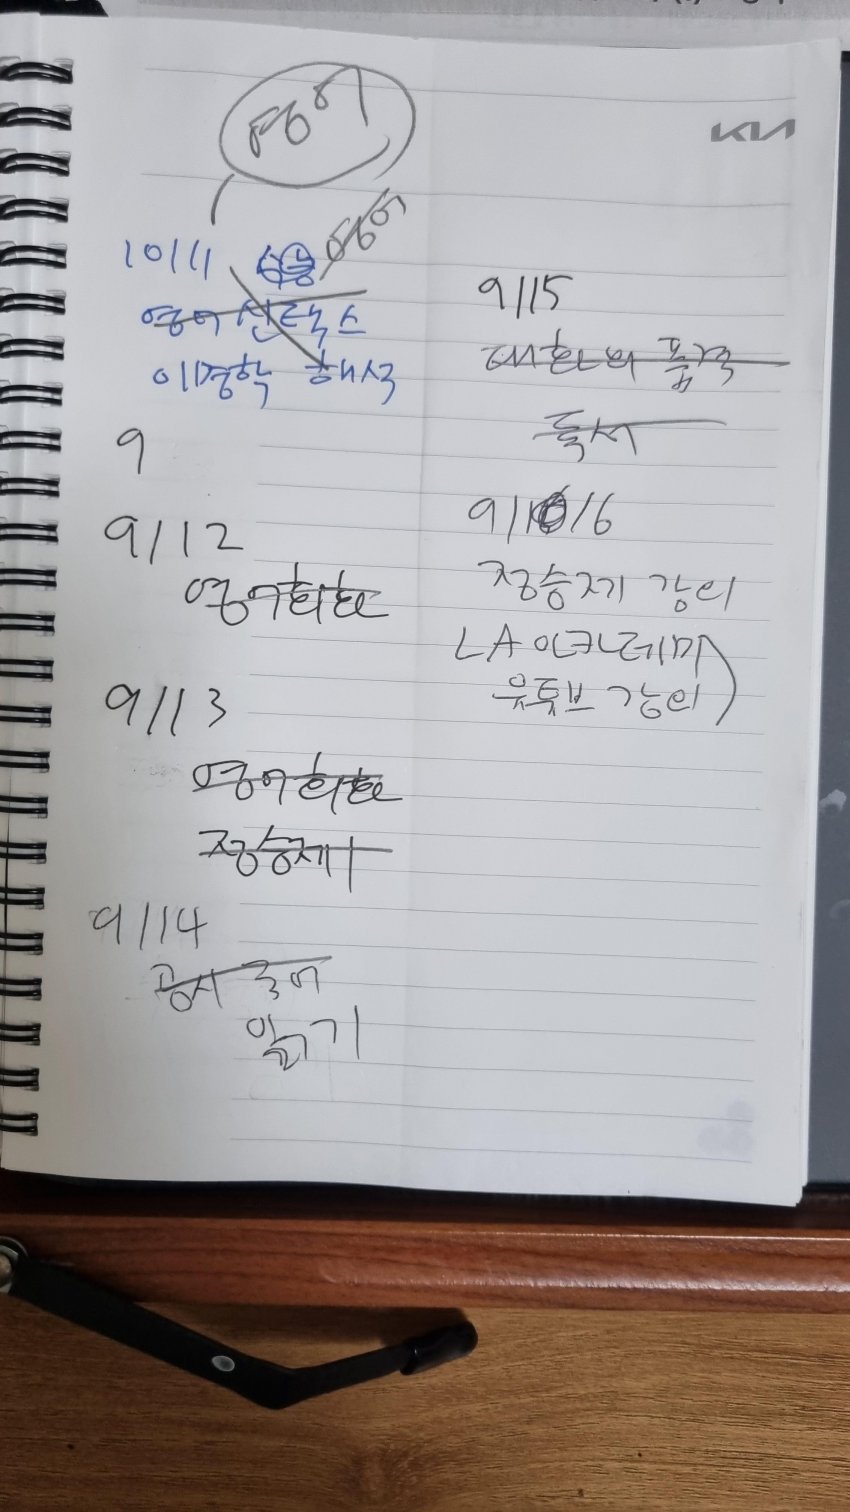 영어
KIA
10/11 수능 영어
영어 신택스
이정학 해석
9
9/12
영어회화
9/13
영어회화
정승제
9/14
공시 국어
읽기
9/15
독서
9/16
정승제 강의
LA 아카데미
유튜브 강의